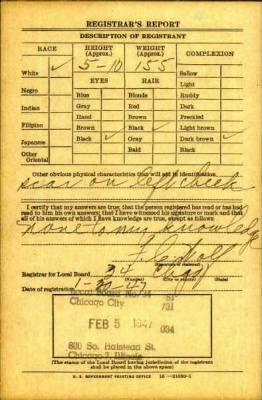 REGISTRAR'S REPORT
DESCRIPTION OF REGISTRANT
RACE
HEIGHT
(Approx.)
WEIGHT
(Approx.)
COMPLEXION
White ✓
5-10
155
Sallow
EYES
HAIR
Light
Negro
Blue
Blonde
Ruddy
Indian
Gray
Red
Dark
Hazel
Brown
Freckled
Filipino
Brown
Black ✓
Light brown
Japanese
Black ✓
Gray
Dark brown ✓
Other
Oriental
Bald
Black
Other obvious physical characteristics that will aid in identification
scar on left cheek
I certify that my answers are true; that the person registered has read or has had
read to him his own answers; that I have witnessed his signature or mark and that
all of his answers of which I have knowledge are true, except as follows:
none to my knowledge
Registrar for Local Board
Date of registration
Chicago City
FEB 5 1947
600 So. Halstead St.
Chicago 7, Illinois
(The stamp of the Local Board having jurisdiction of the registrant
shall be placed in the above space.)
U. S. GOVERNMENT PRINTING OFFICE